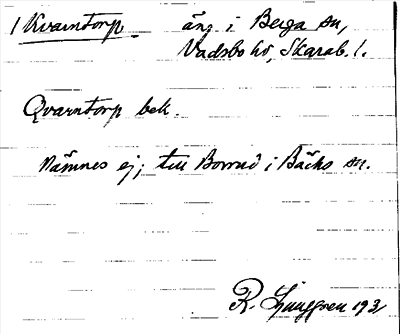 1 Kvarntorp äng i Berga sn,
Vadsbo hd, Skarab. l.
Qvarntorp bek.
Nämnes ej; till Borrud i Bäcks sn.
R. Ljunggren 193